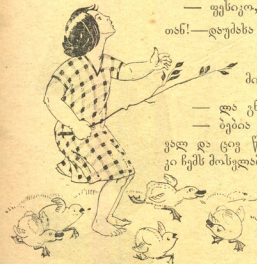 — ფესიკო,
თან!—დაუძახა
მი
— ლა გ
— ბებია
ვალ და ცივ წ
კი ჩემს მოსვლა